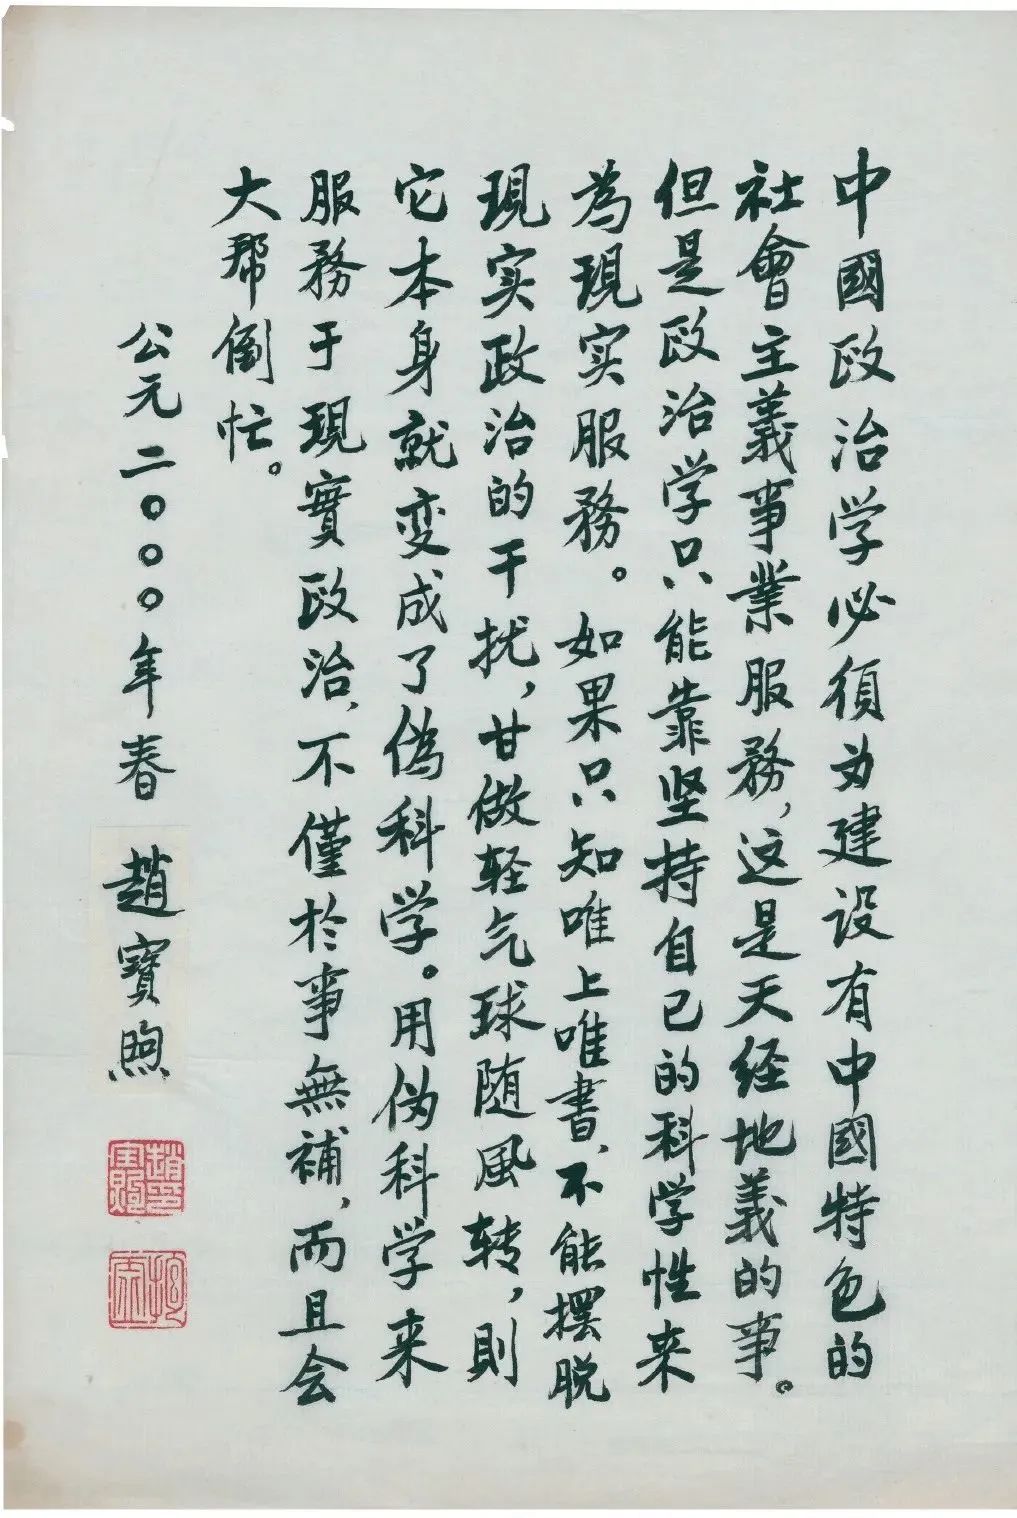 中國政治学必須为建设有中國特色的
社會主義事業服務,这是天经地義的事。
但是政治学只能靠坚持自己的科学性来
為現实服務。如果只知唯上唯書、不能摆脱
現实政治的干扰,甘做轻气球随風转,則
它本身就变成了偽科学。用伪科学来
服務于現實政治,不僅於事無補,而且会
大帮倒忙。
公元二〇〇〇年春
趙寶煦